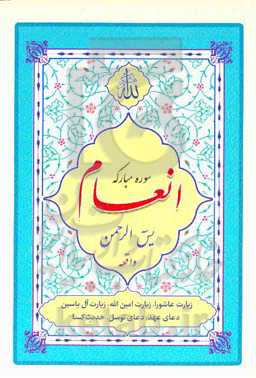 الله
سوره مبارکه
انعام
یس الرحمن
واقعه
زیارت عاشورا، زیارت امین الله، زیارت آل یاسین
دعای عهد، دعای توسل، حدیث کسا